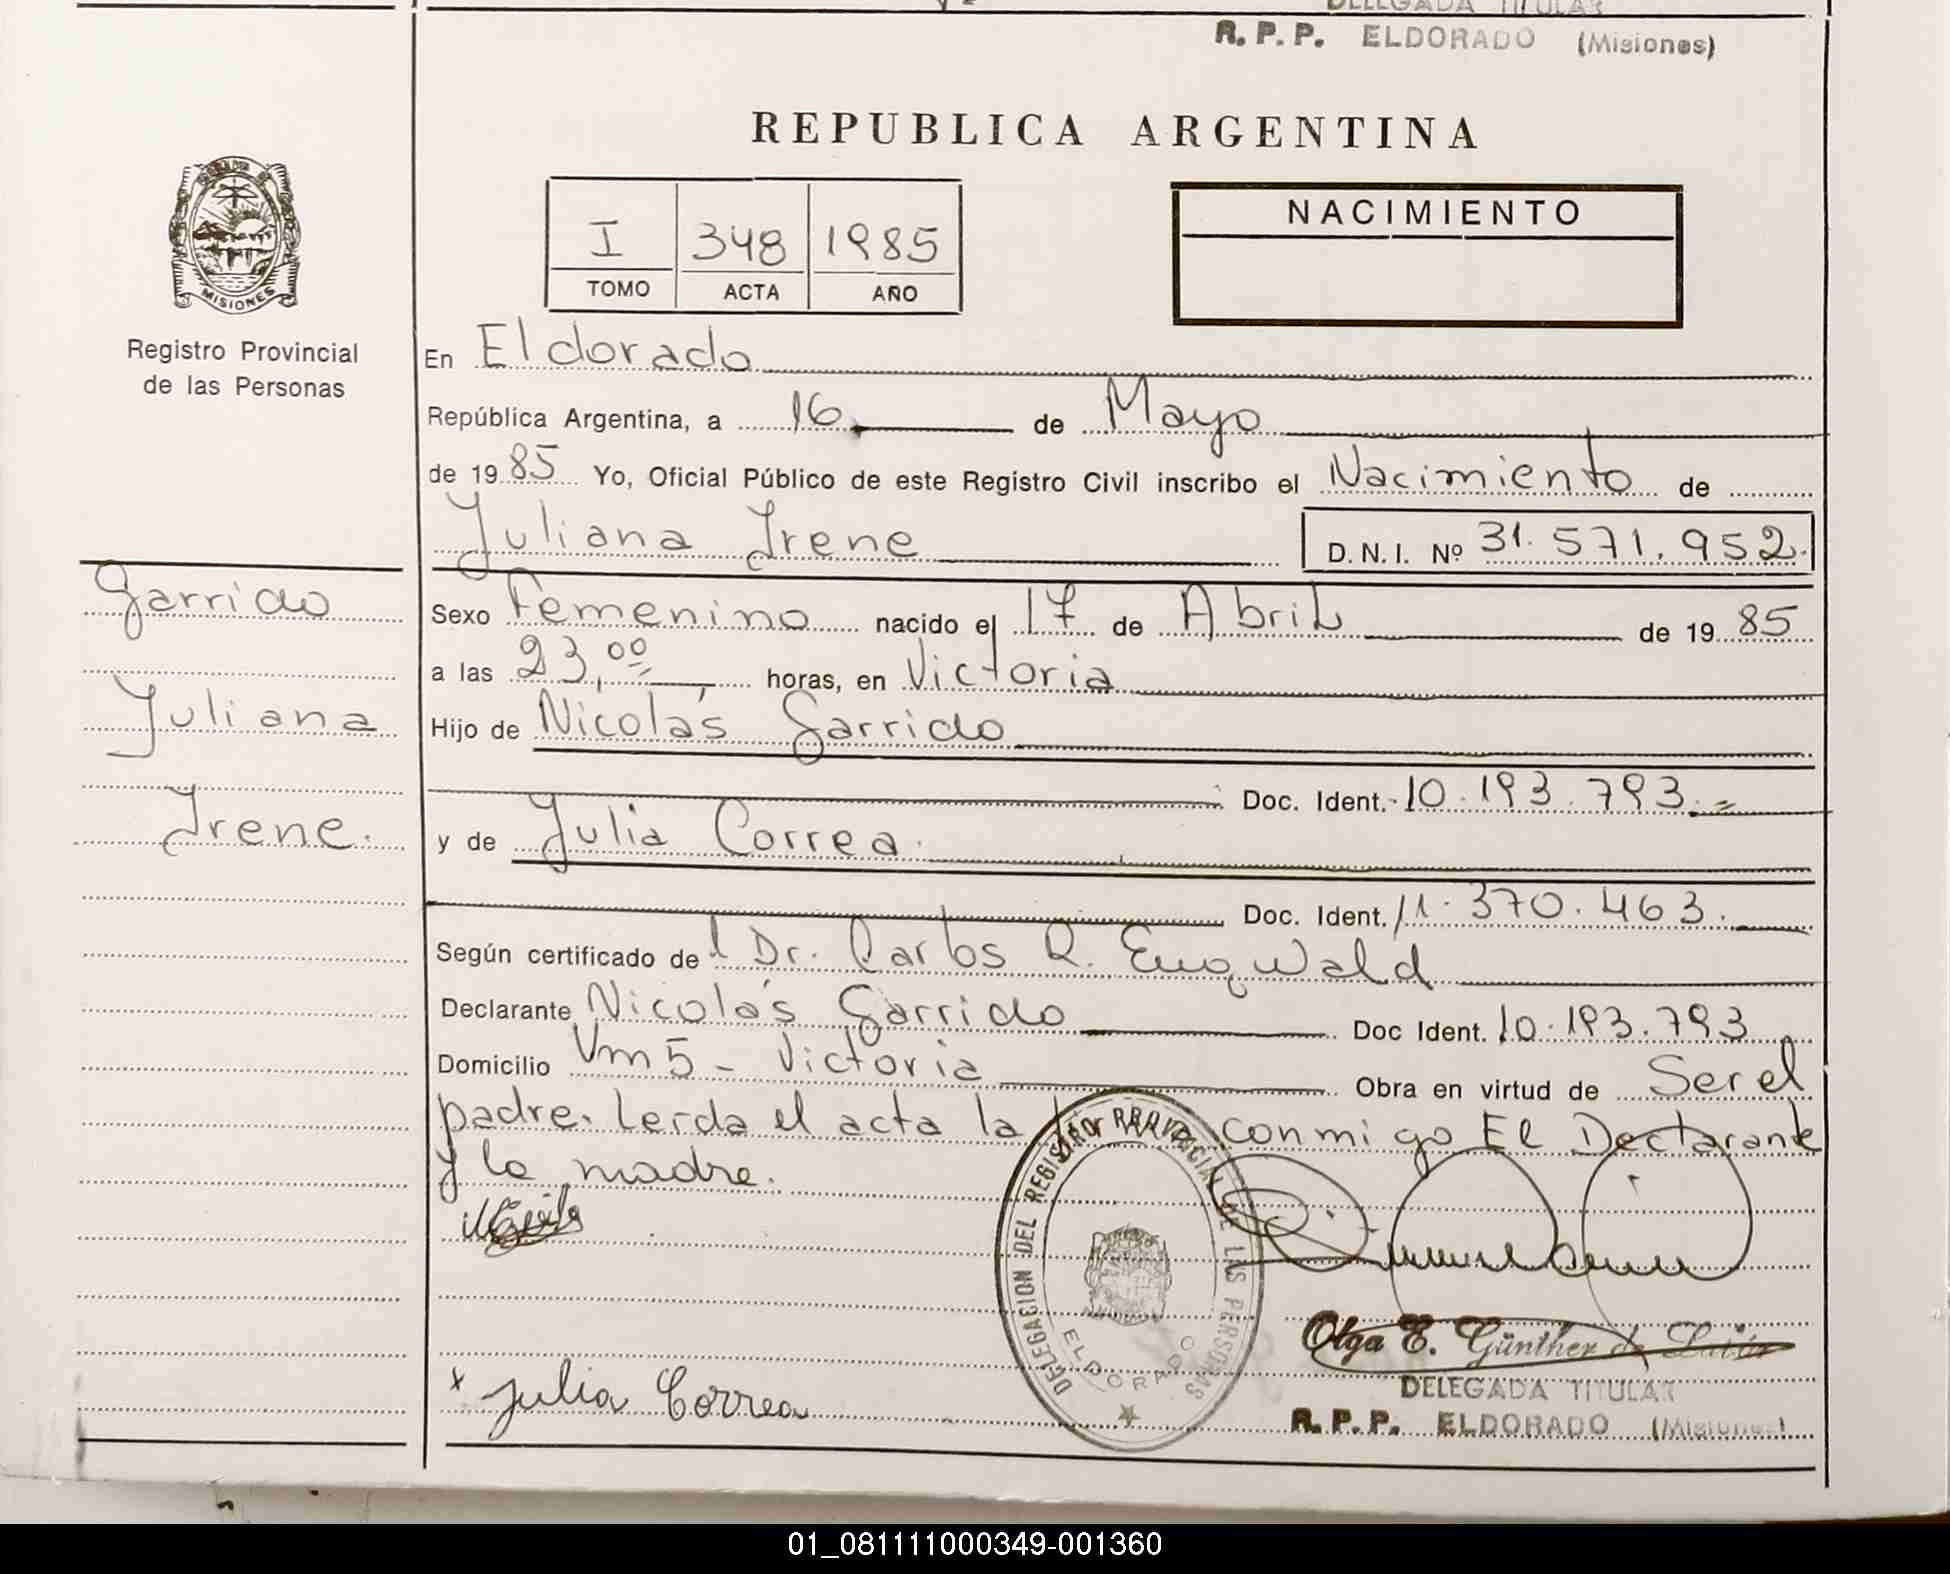 DELEGADA TITULAR
R. P. P. ELDORADO (Misiones)
REPUBLICA ARGENTINA
MISIONES
Registro Provincial
de las Personas
I 348 1985
TOMO ACTA AÑO
NACIMIENTO
En Eldorado
República Argentina, a 16 de Mayo
de 1985 Yo, Oficial Público de este Registro Civil inscribo el Nacimiento de
Juliana Irene D.N.I. Nº 31.571.952.
Garrido
Juliana
Irene.
Sexo Femenino nacido el 17 de Abril de 1985
a las 23,00 horas, en Victoria
Hijo de Nicolás Garrido
Doc. Ident. 10.193.793.
y de Julia Correa.
Doc. Ident. 11.370.463.
Según certificado del Dr. Carlos R.
Declarante Nicolás Garrido Doc Ident. 10.193.793
Domicilio Vm5 - Victoria Obra en virtud de Ser el
padre. Leida el acta la conmigo El Declarante
y la madre.
DELEGACION DEL REGISTRO PROVINCIAL DE LAS PERSONAS
ELDORADO
Olga E. Günther de
DELEGADA TITULAR
R. P. P. ELDORADO (Misiones)
x Julia Correa
01_081111000349-001360